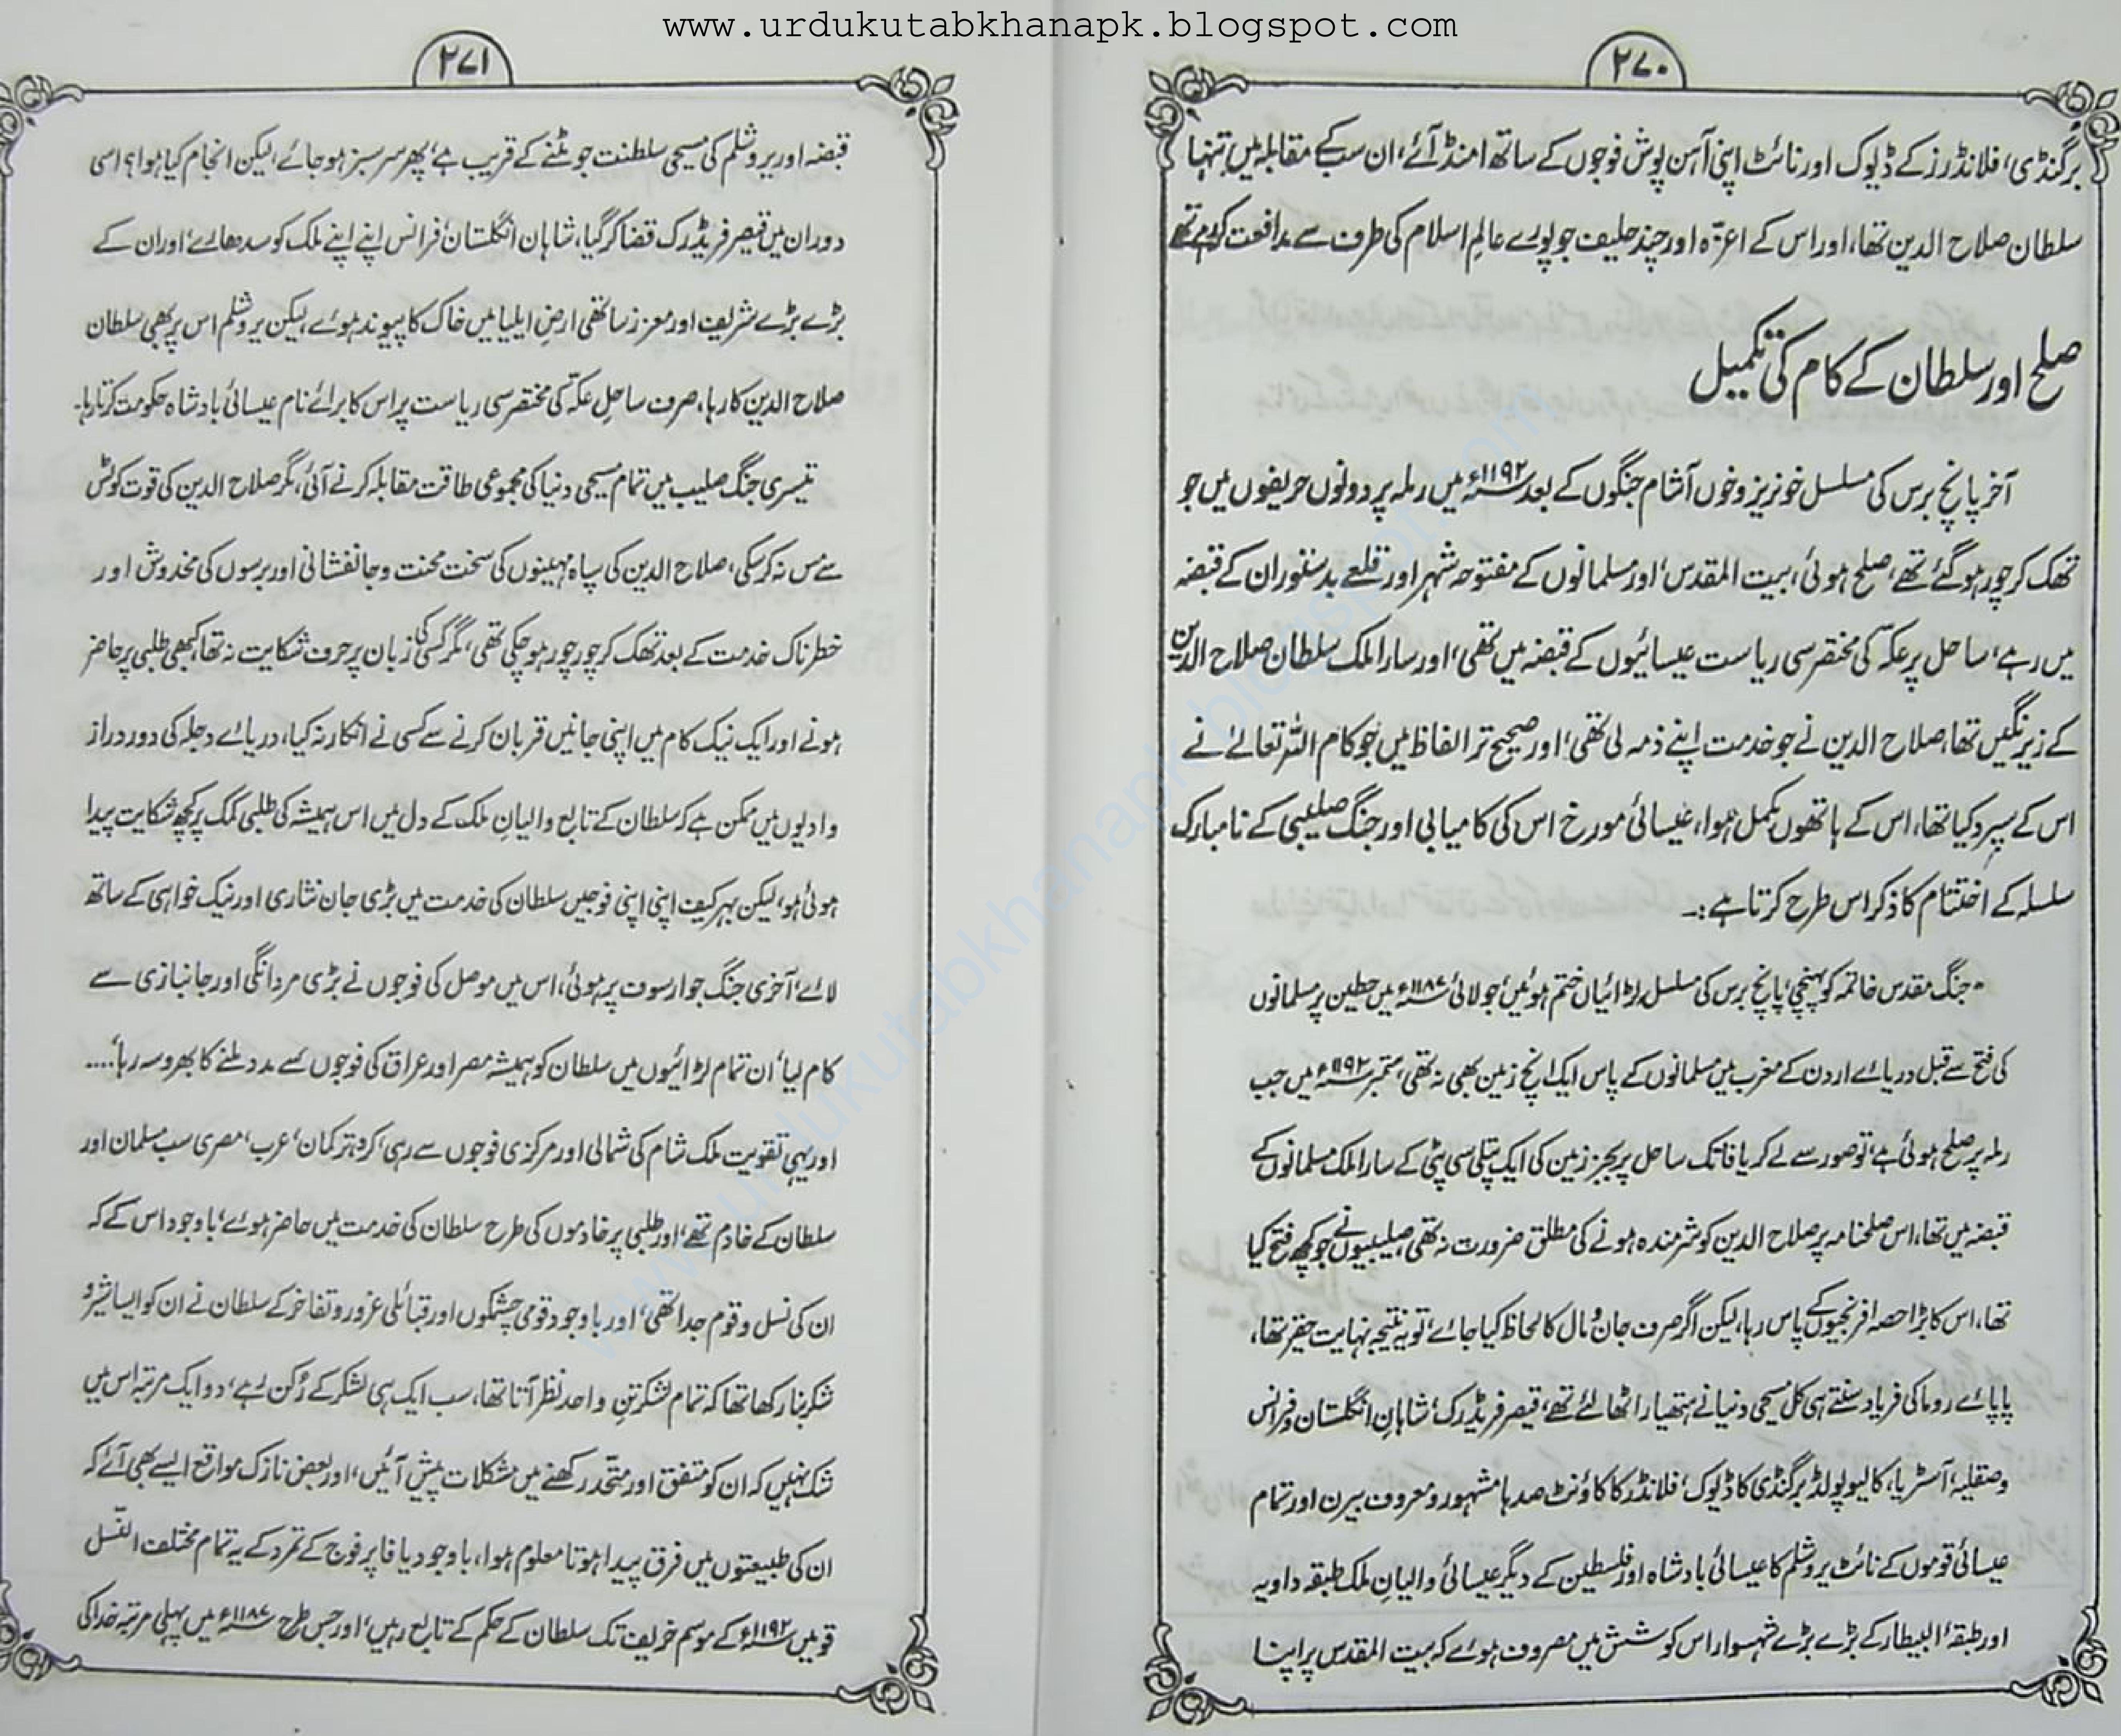 www.urdukutabkhanapk.blogspot.com
۲۷۰
برگنڈی، فلانڈرز کے ڈیوک اور نائٹ اپنی آہن پوش فوجوں کے ساتھ امنڈ آئے، ان سب کے مقابلہ میں تنہا
سلطان صلاح الدین تھا، اور اس کے اعزّہ اور چند حلیف جو پورے عالمِ اسلام کی طرف سے مدافعت کر رہے تھے
صلح اور سلطان کے کام کی تکمیل
آخر پانچ برس کی مسلسل خونریز و خوں آشام جنگوں کے بعد ۱۱۹۲ء میں رملہ پر دونوں حریفوں میں جو
تھک کر چور ہو گئے تھے، صلح ہوئی، بیت المقدس، اور مسلمانوں کے مفتوحہ شہر اور قلعے بدستور ان کے قبضہ
میں رہے، ساحل پر عکّہ کی مختصر سی ریاست عیسائیوں کے قبضہ میں تھی، اور سارا ملک سلطان صلاح الدین
کے زیرنگیں تھا، صلاح الدین نے جو خدمت اپنے ذمہ لی تھی، اور صحیح تر الفاظ میں جو کام اللہ تعالےٰ نے
اس کے سپرد کیا تھا، اس کے ہاتھوں مکمل ہوا، عیسائی مورخ اس کی کامیابی اور جنگ صلیبی کے نامبارک
سلسلہ کے اختتام کا ذکر اس طرح کرتا ہے:۔
"جنگ مقدس خاتمہ کو پہنچی، پانچ برس کی مسلسل لڑائیاں ختم ہوئیں، جولائی ۱۱۸۷ء میں حطین پر مسلمانوں
کی فتح سے قبل دریائے اردن کے مغرب میں مسلمانوں کے پاس ایک انچ زمین بھی نہ تھی، ستمبر ۱۱۹۲ء میں جب
رملہ پر صلح ہوئی ہے، تو صور سے لے کر یافا تک ساحل پر بجز زمین کی ایک پتلی سی پٹی کے سارا ملک مسلمانوں کے
قبضہ میں تھا، اس صلحنامہ پر صلاح الدین کو شرمندہ ہونے کی مطلق ضرورت نہ تھی، صلیبیوں نے جو کچھ فتح کیا
تھا، اس کا بڑا حصہ افرنجیوں کے پاس رہا، لیکن اگر صرف جان و مال کا لحاظ کیا جائے، تو یہ نتیجہ نہایت حقیر تھا،
پاپائے روما کی فریاد سنتے ہی کل مسیحی دنیا نے ہتھیار اٹھا لئے تھے، قیصر فریڈرک، شاہانِ انگلستان و فرانس
و صقلیہ، آسٹریا، کا لیوپولڈ برگنڈی کا ڈیوک، فلانڈر کا کاؤنٹ صدہا مشہور و معروف بیرن اور تمام
عیسائی قوموں کے نائٹ یروشلم کا عیسائی بادشاہ اور فلسطین کے دیگر عیسائی والیانِ ملک طبقہ داویہ
اور طبقۂ البیطار کے بڑے بڑے شہسوار اس کوشش میں مصروف ہوئے کہ بیت المقدس پر اپنا
۲۷۱
قبضہ اور یروشلم کی مسیحی سلطنت جو مٹنے کے قریب ہے، پھر سرسبز ہو جائے، لیکن انجام کیا ہوا؟ اسی
دوران میں قیصر فریڈرک قضا کر گیا، شاہان انگلستان، فرانس اپنے اپنے ملک کو سدھارے، اور ان کے
بڑے بڑے شریف اور معزز ساتھی ارضِ ایلیا میں خاک کا پیوند ہوئے، لیکن یروشلم اس پر بھی سلطان
صلاح الدین کا رہا، صرف ساحلِ عکّہ کی مختصر سی ریاست پر اس کا برائے نام عیسائی بادشاہ حکومت کرتا رہا۔
تیسری جنگ صلیب میں تمام مسیحی دنیا کی مجموعی طاقت مقابلہ کرنے آئی، مگر صلاح الدین کی قوت کو ٹس
سے مس نہ کر سکی، صلاح الدین کی سپاہ مہینوں کی سخت محنت و جانفشانی اور برسوں کی مخدوش اور
خطرناک خدمت کے بعد تھک کر چور چور ہو چکی تھی، مگر کسی کی زبان پر حرف شکایت نہ تھا، کبھی طلبی پر حاضر
ہونے اور ایک نیک کام میں اپنی جانیں قربان کرنے سے کسی نے انکار نہ کیا، دریائے دجلہ کی دور دراز
وادیوں میں ممکن ہے کہ سلطان کے تابع والیانِ ملک کے دل میں اس ہمیشہ کی طلبی کمک پر کچھ شکایت پیدا
ہوئی ہو، لیکن بہر کیف اپنی اپنی فوجیں سلطان کی خدمت میں بڑی جان نثاری اور نیک خواہی کے ساتھ
لائے، آخری جنگ جو ارسوف پر ہوئی، اس میں موصل کی فوجوں نے بڑی مردانگی اور جانبازی سے
کام لیا، ان تمام لڑائیوں میں سلطان کو ہمیشہ مصر اور عراق کی فوجوں سے مدد ملنے کا بھروسہ رہا،....
اور یہی تقویت ملک شام کی شمالی اور مرکزی فوجوں سے رہی، کرد، ترکمان، عرب، مصری سب مسلمان اور
سلطان کے خادم تھے، اور طلبی پر خادموں کی طرح سلطان کی خدمت میں حاضر ہوئے، باوجود اس کے کہ
ان کی نسل و قوم جدا تھی، اور باوجود قومی چشمکوں اور قبائلی غرور و تفاخر کے سلطان نے ان کو ایسا شیر و
شکر بنا رکھا تھا کہ تمام لشکر تنِ واحد نظر آتا تھا، سب ایک ہی لشکر کے رُکن رہے، دو ایک مرتبہ اس میں
شک نہیں کہ ان کو متفق اور متحد رکھنے میں مشکلات پیش آئیں، اور بعض نازک مواقع ایسے بھی آئے کہ
ان کی طبیعتوں میں فرق پیدا ہوتا معلوم ہوا، باوجود یافا پر فوج کے تمرد کے یہ تمام مختلف النّسل
قومیں ۱۱۹۲ء کے موسم خریف تک سلطان کے حکم کے تابع رہیں، اور جس طرح ۱۱۸۷ء میں پہلی مرتبہ خدا کی
www.urdukutabkhanapk.blogspot.com